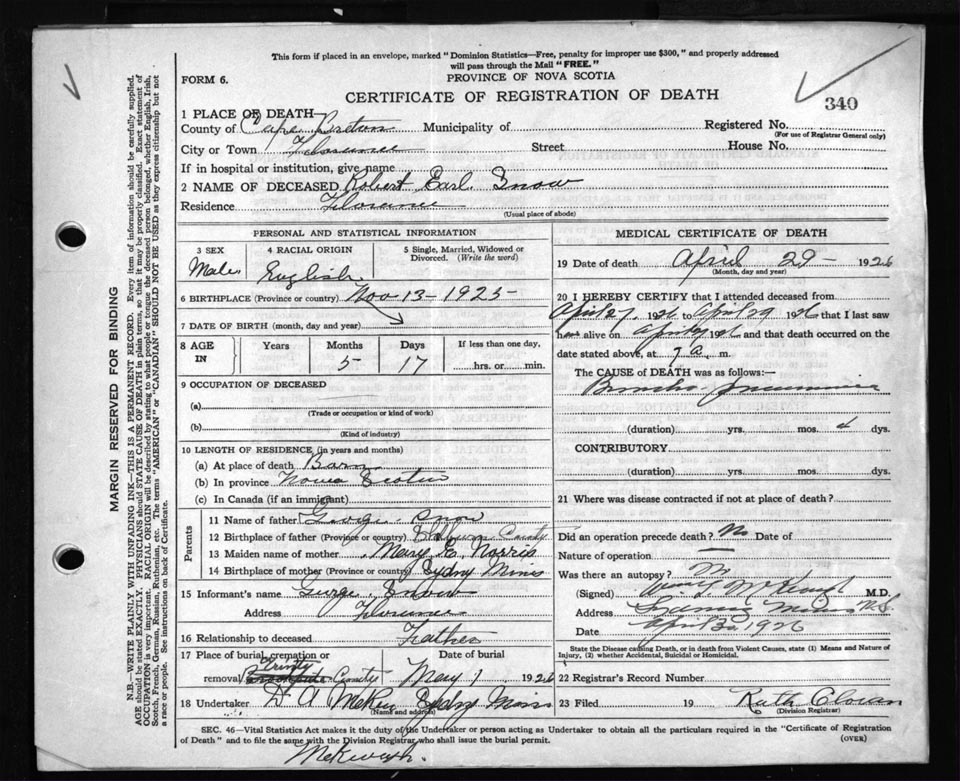 This form if placed in an envelope, marked "Dominion Statistics—Free, penalty for improper use $300," and properly addressed
will pass through the Mail "FREE."
FORM 6.
PROVINCE OF NOVA SCOTIA
CERTIFICATE OF REGISTRATION OF DEATH
340
1 PLACE OF DEATH
County of Cape Breton Municipality of Registered No.
(For use of Registrar General only)
City or Town Florence Street House No.
If in hospital or institution, give name
2 NAME OF DECEASED Robert Earl Snow
Residence Florence
(Usual place of abode)
PERSONAL AND STATISTICAL INFORMATION
3 SEX 4 RACIAL ORIGIN 5 Single, Married, Widowed or Divorced. (Write the word)
Male English
6 BIRTHPLACE (Province or country) Nov 13 - 1925 -
7 DATE OF BIRTH (month, day and year)
8 AGE IN Years Months Days If less than one day,
5 17 hrs. or min.
9 OCCUPATION OF DECEASED
(a)
(Trade or occupation or kind of work)
(b)
(Kind of industry)
10 LENGTH OF RESIDENCE (in years and months)
(a) At place of death Born
(b) In province Nova Scotia
(c) In Canada (if an immigrant)
Parents
11 Name of father George Snow
12 Birthplace of father (Province or country) County
13 Maiden name of mother Mary E. Norris
14 Birthplace of mother (Province or country) Sydny Mines
15 Informant's name George Snow
Address Florence
16 Relationship to deceased Father
17 Place of burial, cremation or removal Trinity Date of burial
May 1 1926
18 Undertaker D A Sydny Mines
(Name and address)
MEDICAL CERTIFICATE OF DEATH
19 Date of death April 29 - 1926
(Month, day and year)
20 I HEREBY CERTIFY that I attended deceased from
April 27, 1926 to April 29 1926 that I last saw
h alive on April 29 1926 and that death occurred on
date stated above, at 7 a. m.
The CAUSE of DEATH was as follows:
Broncho-pneumonia
(duration) yrs. mos. dys.
CONTRIBUTORY
(duration) yrs. mos. dys.
21 Where was disease contracted if not at place of death?
Did an operation precede death? No Date of
Nature of operation
Was there an autopsy? No
(Signed) M.D.
Address Mines N.S.
Date April 30 1926
State the Disease causing Death, or in death from Violent Causes, state (1) Means and Nature of
Injury, (2) whether Accidental, Suicidal or Homicidal.
22 Registrar's Record Number
23 Filed 19 Ruth
(Division Registrar)
SEC. 46—Vital Statistics Act makes it the duty of the Undertaker or person acting as Undertaker to obtain all the particulars required in the "Certificate of Registration
of Death" and to file the same with the Division Registrar who shall issue the burial permit.
(OVER)
MARGIN RESERVED FOR BINDING
N.B.—WRITE PLAINLY WITH UNFADING INK—THIS IS A PERMANENT RECORD. Every item of information should be carefully supplied.
AGE should be stated EXACTLY. PHYSICIANS should STATE CAUSE OF DEATH in plain terms, so that it may be properly classified. Exact statement of
OCCUPATION is very important. RACIAL ORIGIN will be described by stating to what people or tongue the deceased person belonged, whether English, Irish,
Scotch, French, German, Russian, Ruthenian, etc. The terms "AMERICAN" or "CANADIAN" SHOULD NOT BE USED as they express citizenship but not
a race or people. See instructions on back of Certificate.